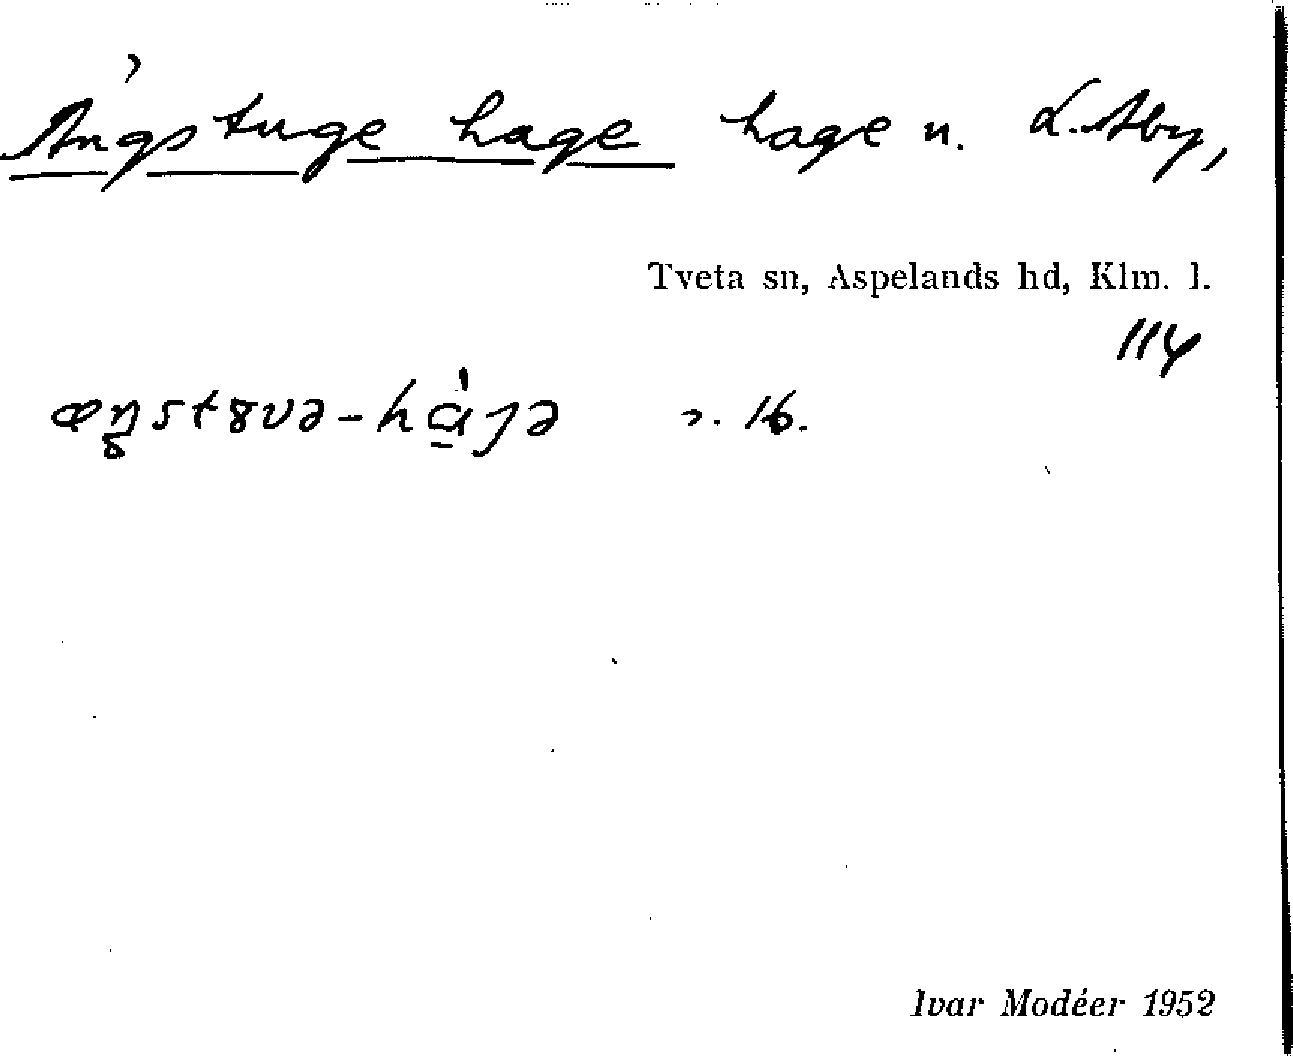 Ängstuge hage hage n. L. Åby,
Tveta sn, Aspelands hd, Klm. l.
114
16.
Ivar Modéer 1952